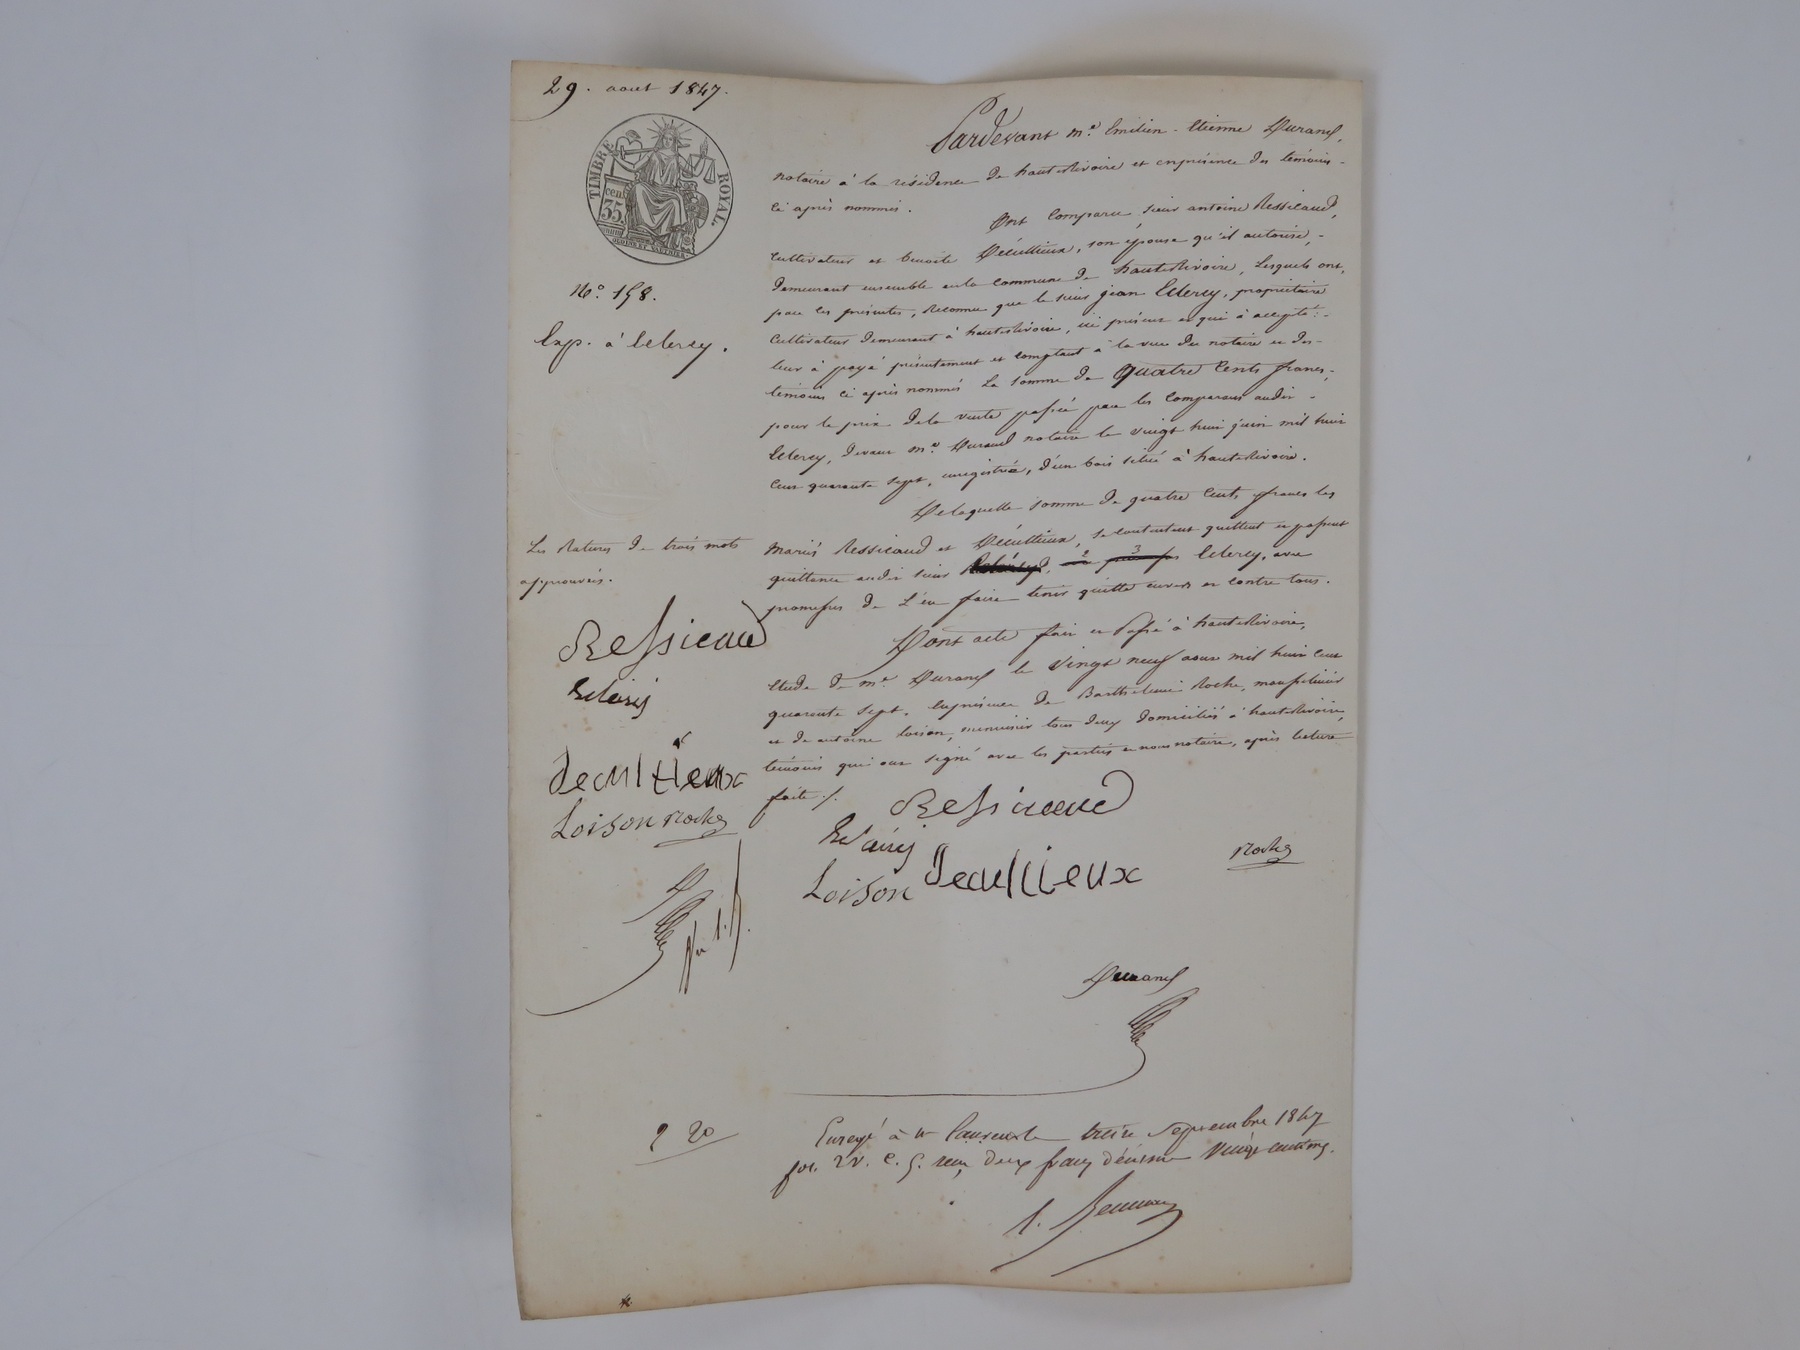 29. aout 1847.
TIMBRE ROYAL.
cent.
35.
N.o 158.
Exp. à Eclercy.
Pardevant M.e Emilien-Etienne Durand,
notaire à la résidence de hauterivoire et en présence des témoins
ci après nommés.
Ont comparu sieur antoine Ressicaud,
cultivateur et benoite Décultieux, son épouse qu'il autorise,
demeurant ensemble en la commune de hauterivoire, Lesquels ont,
par ces présentes, reconnu que le sieur jean Eclercy, propriétaire
cultivateur demeurant à hauterivoire, ici présent et qui a accepté:
leur à payé présentement et comptant à la vue du notaire et des
témoins ci après nommés La somme de quatre cents francs,
pour le prix de la vente passée par les comparans audit
Eclercy, devant M.e Durand notaire le vingt huit juin mil huit
cent quarante sept, enregistrée, d'un bois situé à hauterivoire.
De laquelle somme de quatre cents francs les
mariés Ressicaud et Décultieux, se contentent quittent et passent
quittance audit sieur Eclercy, avec
promesses de L'en faire tenir quitte envers et contre tous.
Les ratures de trois mots
approuvés.
Dont acte fait et Passé à hauterivoire,
Etude de M.e Durand le vingt neuf aout mil huit cent
quarante sept. En présence de Barthélemi Roche,
et de antoine Loison, menuisier tous deux domiciliés à hauterivoire,
témoins qui ont signé avec les parties et nous notaire, après lecture
faite ./.
Ressicaud
decultieux
Loison Roche
Ressicaud
Loison decultieux
Roche
Durand
2 20
Enregé à St Laurent le treize septembre 1847
fol. 2 v. c. 5. reçu deux francs décime vingt centimes.